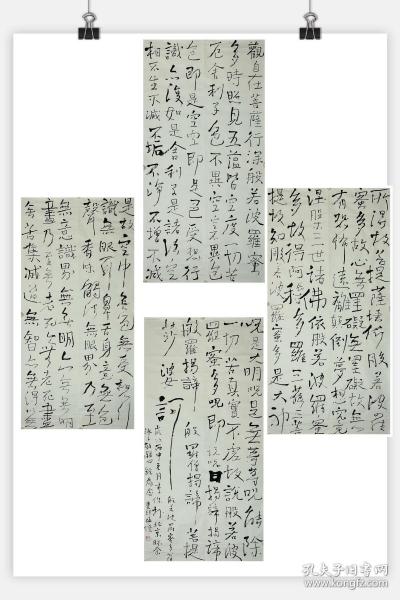 觀自在菩薩行深般若波羅蜜
多時照見五蘊皆空度一切苦
厄舍利子色不異空空不異色
色即是空空即是色受想行
識亦復如是舍利子是諸法空
相不生不滅不垢不淨不增不減
是故空中無色無受想行
識無眼耳鼻舌身意無色
聲香味觸法無眼界乃至
無意識界無無明亦無無明
盡乃至無老死亦無老死盡
無苦集滅道無智亦無得以無
所得故菩提薩埵依般若波羅
蜜多故心無罣礙無罣礙故無
有恐怖遠離顛倒夢想究竟
涅槃三世諸佛依般若波羅蜜
多故得阿耨多羅三藐三菩
提故知般若波羅蜜多是大神
咒是大明咒是無等等咒能除
一切苦真實不虛故說般若波
羅蜜多咒即說咒曰揭諦揭諦
般羅揭諦 般羅僧揭諦 菩提
莎婆訶
孔夫子旧书网
www.kongfz.com